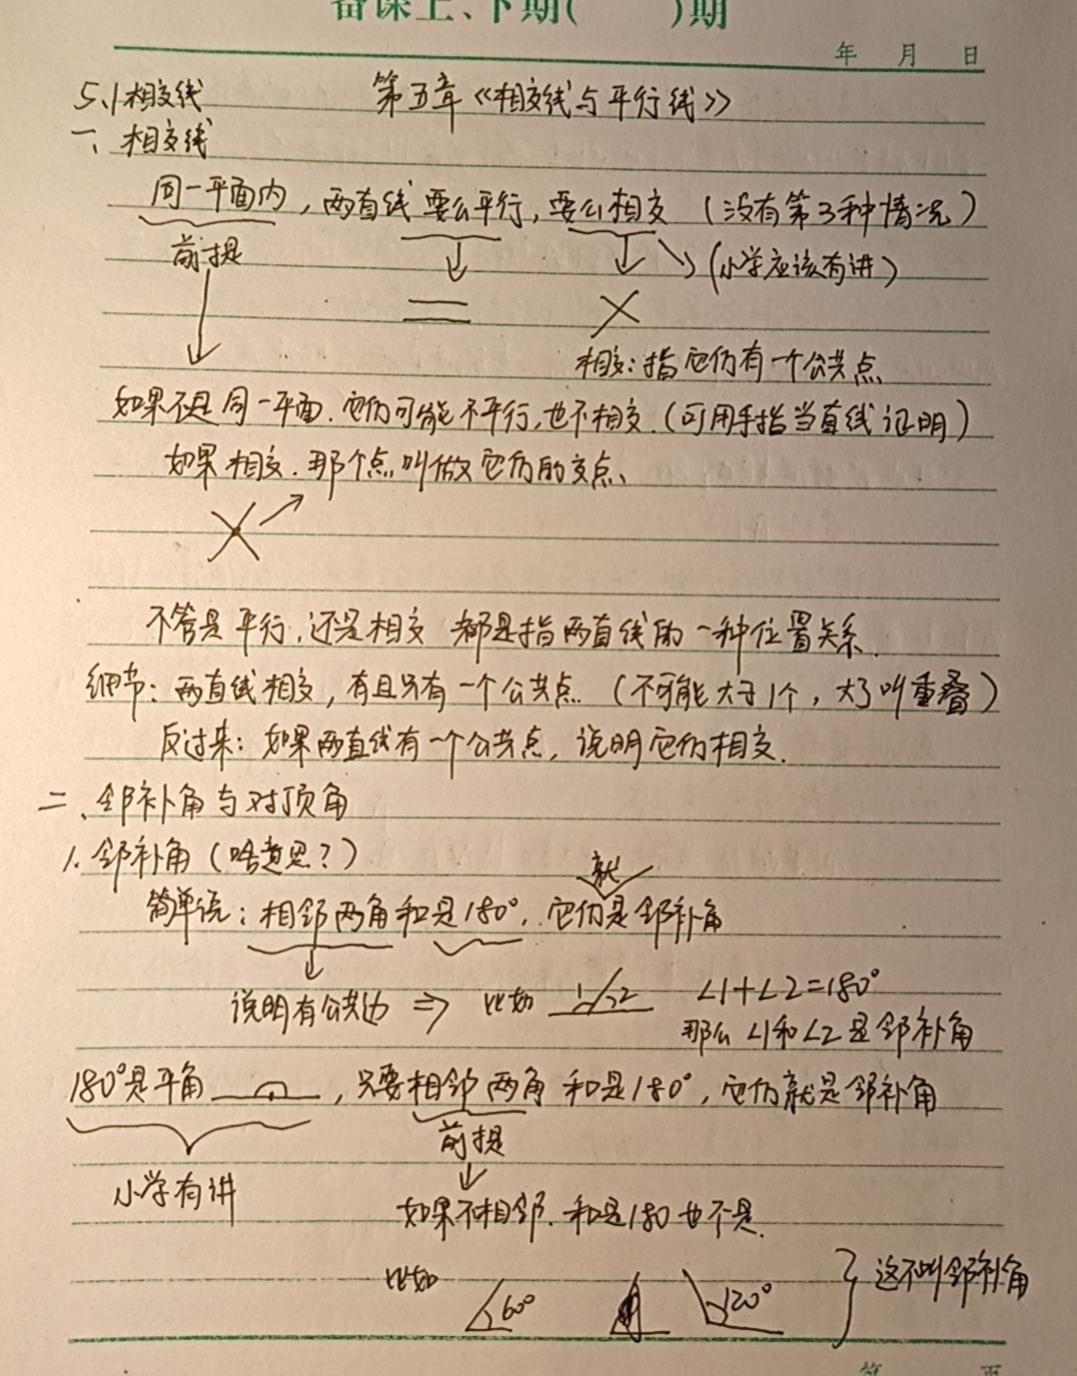 备课上、下期(    )期
年 月 日
5.1相交线 第五章《相交线与平行线》
一、相交线
同一平面内，两直线要么平行，要么相交（没有第3种情况）
前提 （小学应该有讲）
相交：指它们有一个公共点
如果不是同一平面.它们可能不平行,也不相交.(可用手指当直线证明)
如果相交.那个点叫做它们的交点、
不管是平行.还是相交 都是指两直线的一种位置关系.
细节：两直线相交，有且只有一个公共点.（不可能大于1个，大了叫重叠）
反过来：如果两直线有一个公共点，说明它们相交.
二、邻补角与对顶角
1.邻补角（啥意思？）
就
简单说：相邻两角和是180°.它们是邻补角
说明有公共边 ⇒ 比如 1 2 ∠1+∠2=180°
那么∠1和∠2是邻补角
180°是平角 ，只要相邻两角和是180°，它们就是邻补角
前提
小学有讲
如果不相邻.和是180也不是.
比如 60° 120° 这不叫邻补角
第 页